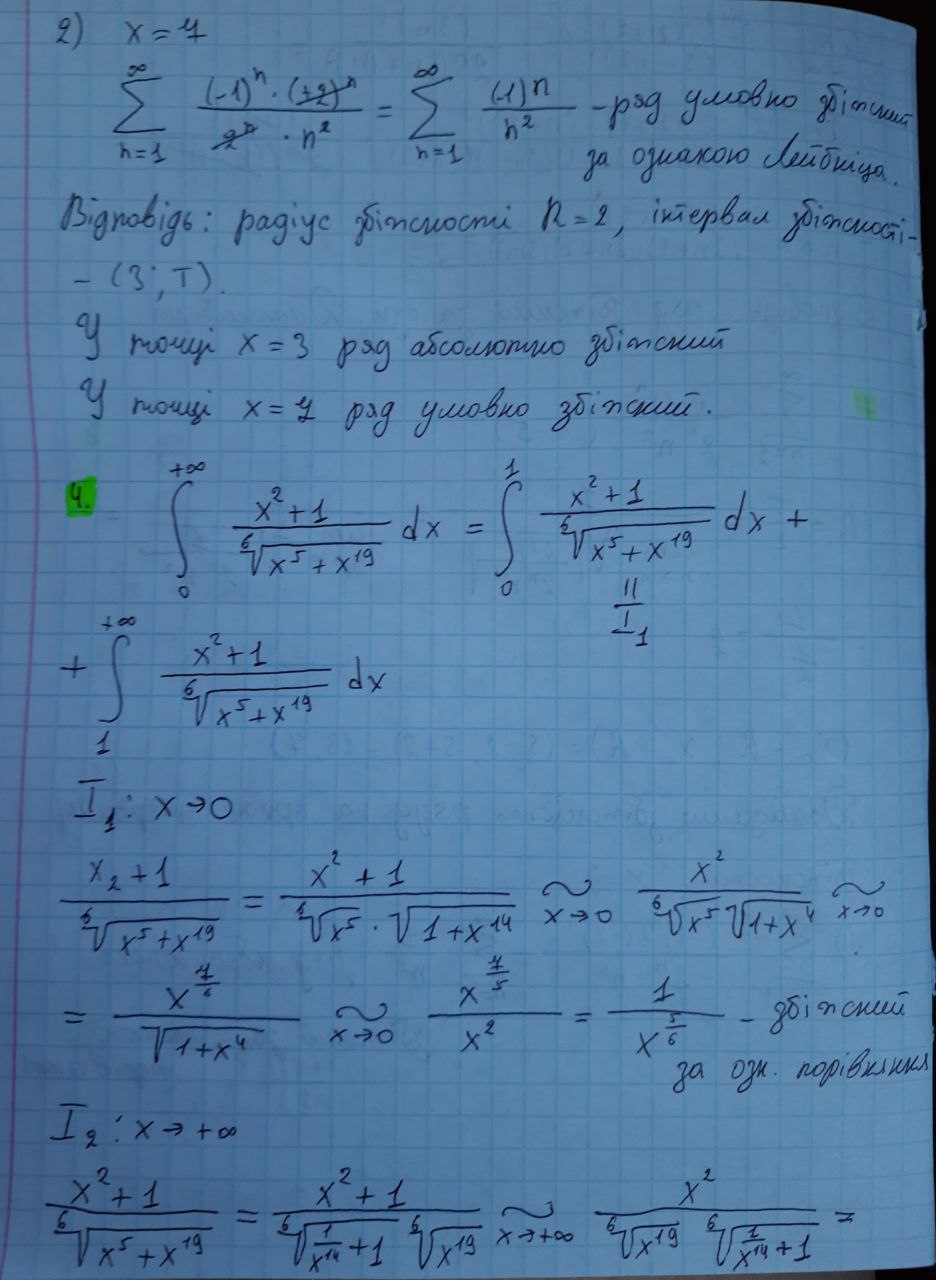 2) x = 7
∑_{n=1}^{∞} \frac{(-1)^n · (+2)^n}{2^n · n^2} = ∑_{n=1}^{∞} \frac{(-1)^n}{n^2} - ряд умовно збіжний
за ознакою Лейбніца.
Відповідь: радіус збіжності R = 2, інтервал збіжності -
- (3; 7).
У точці x = 3 ряд абсолютно збіжний
У точці x = 7 ряд умовно збіжний.
4. ∫_{0}^{+∞} \frac{x^2+1}{\sqrt[6]{x^5+x^{19}}} dx = ∫_{0}^{1} \frac{x^2+1}{\sqrt[6]{x^5+x^{19}}} dx +
II
I_1
+ ∫_{1}^{+∞} \frac{x^2+1}{\sqrt[6]{x^5+x^{19}}} dx
I_1: x → 0
\frac{x_2+1}{\sqrt[6]{x^5+x^{19}}} = \frac{x^2+1}{\sqrt[6]{x^5} · \sqrt{1+x^{14}}} \underset{x→0}{~} \frac{x^2}{\sqrt[6]{x^5} \sqrt{1+x^4}} \underset{x→0}{~}
= \frac{x^{\frac{7}{6}}}{\sqrt{1+x^4}} \underset{x→0}{~} \frac{x^{\frac{7}{5}}}{x^2} = \frac{1}{x^{\frac{5}{6}}} - збіжний
за озн. порівняння
I_2: x → +∞
\frac{x^2+1}{\sqrt[6]{x^5+x^{19}}} = \frac{x^2+1}{\sqrt[6]{\frac{1}{x^{14}}+1} \sqrt[6]{x^{19}}} \underset{x→+∞}{~} \frac{x^2}{\sqrt[6]{x^{19}} \sqrt[6]{\frac{1}{x^{14}}+1}} =